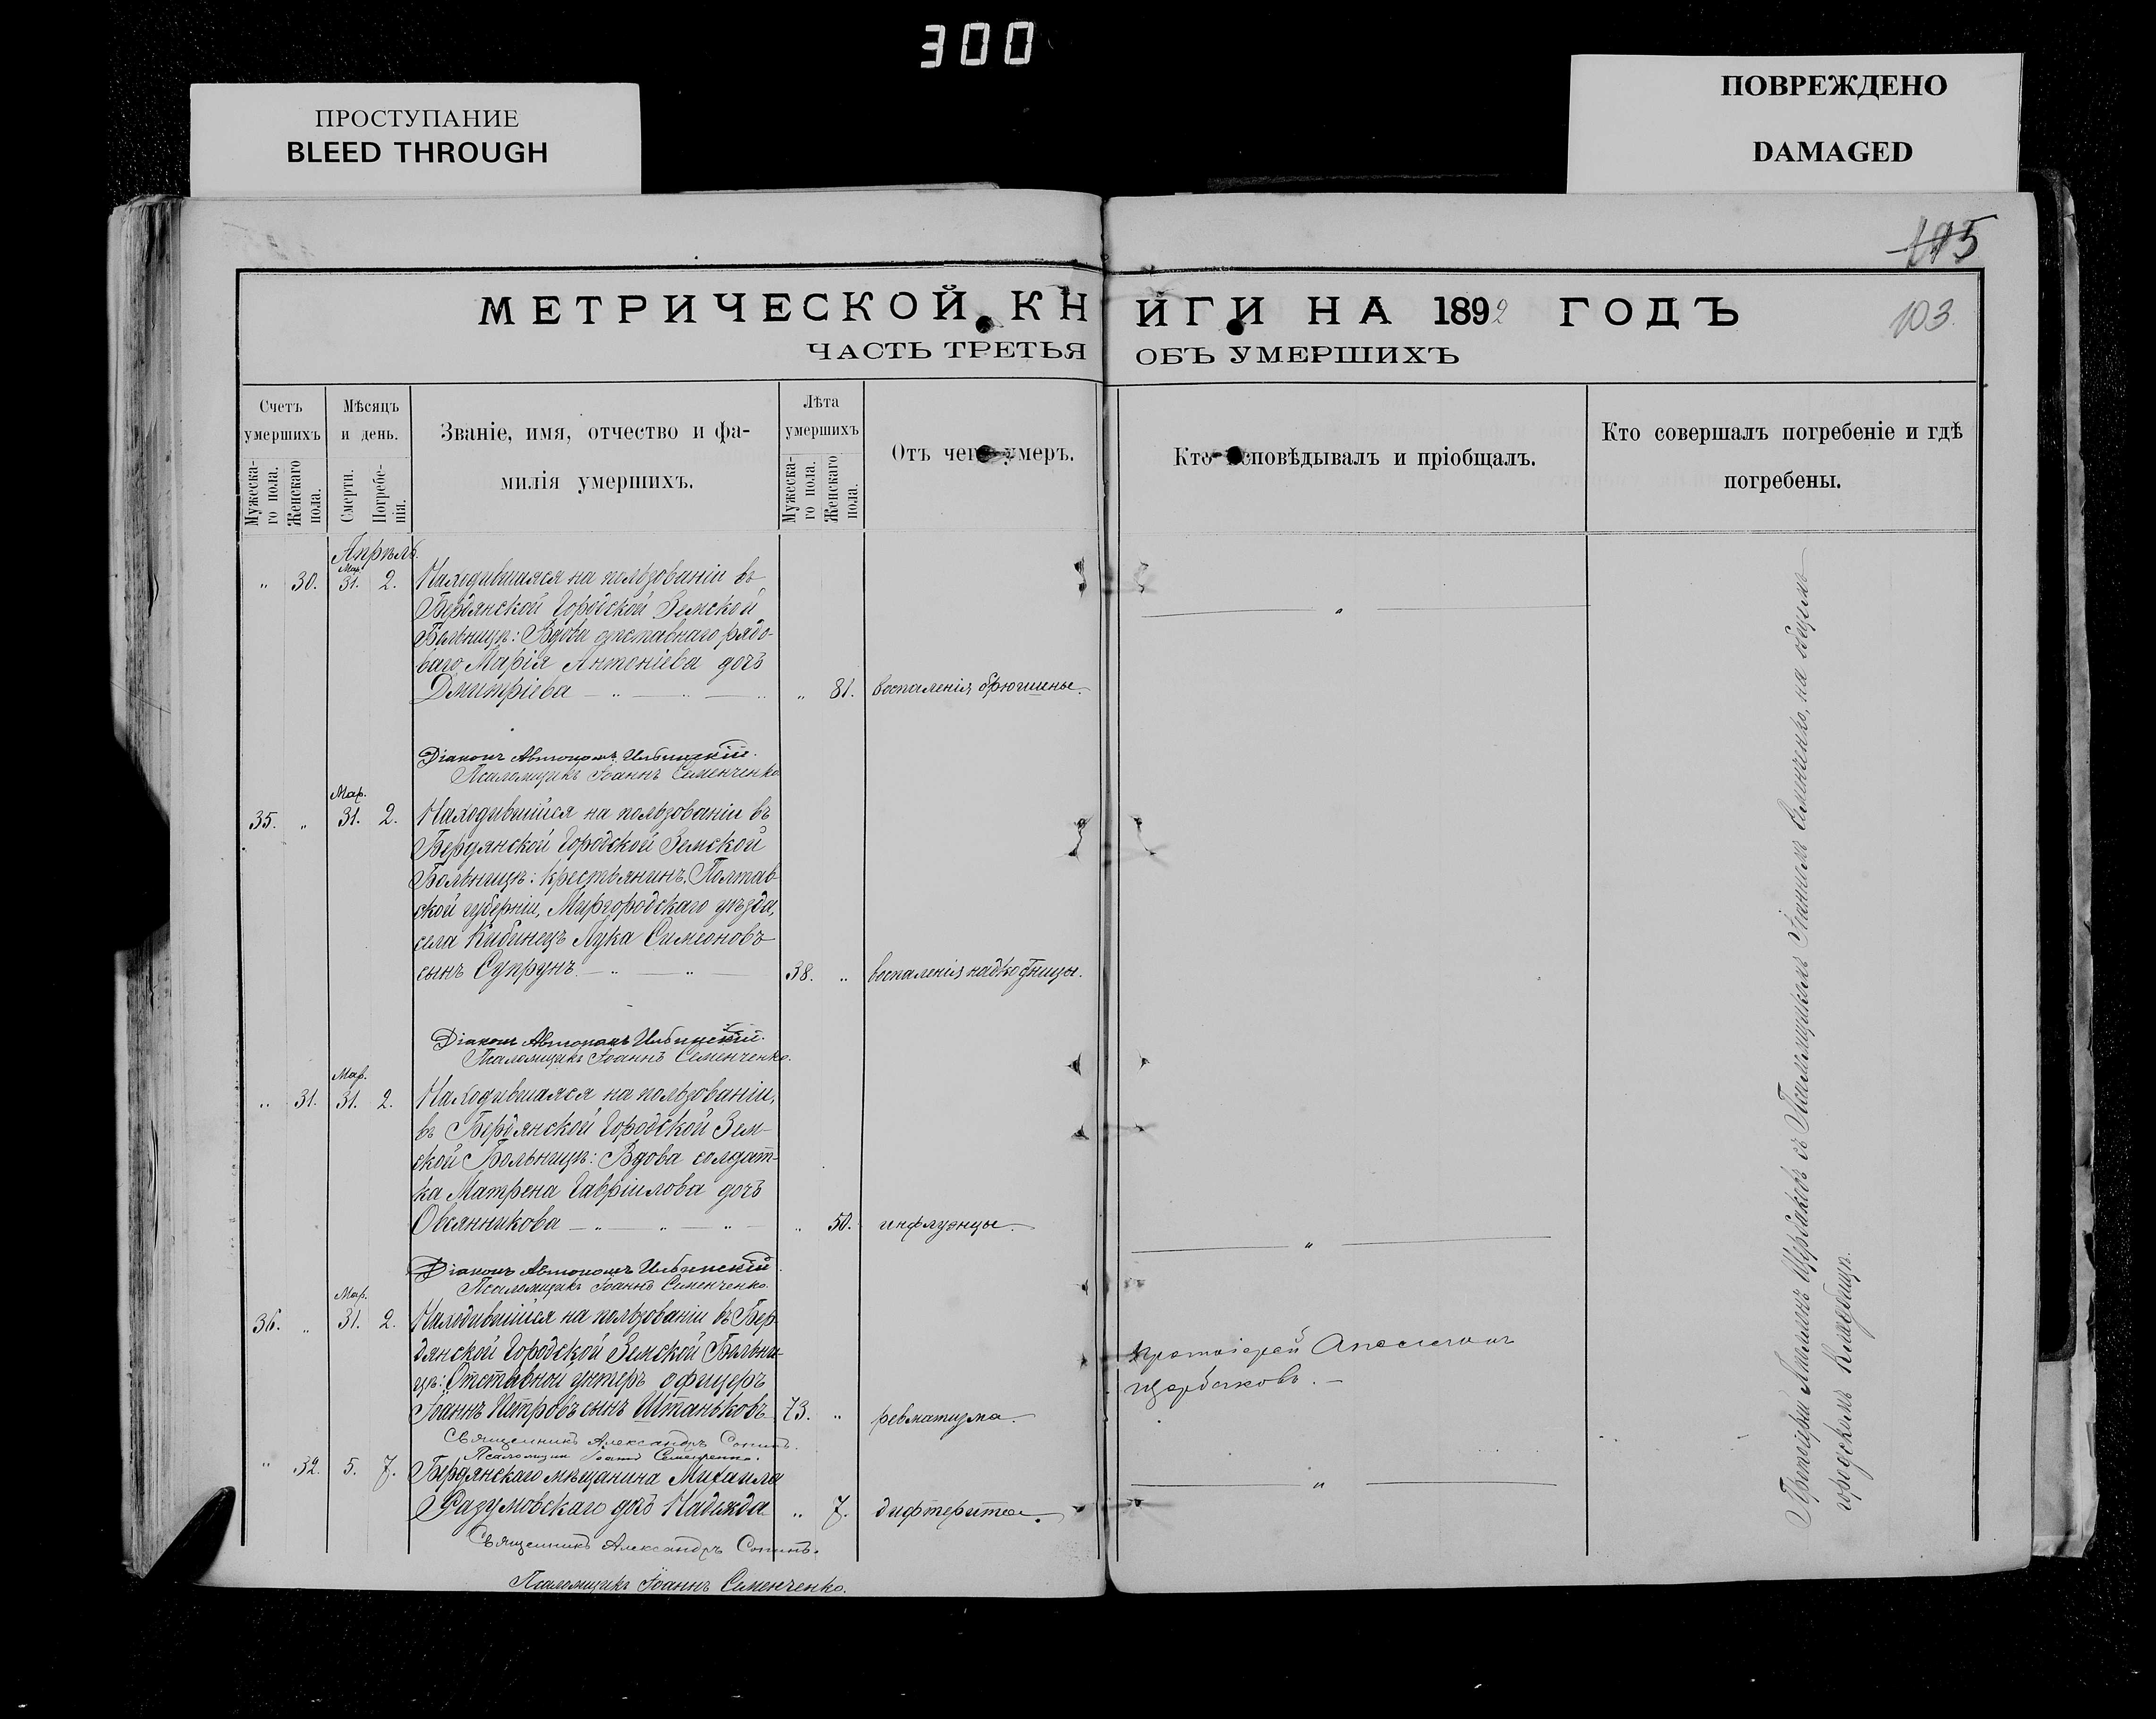 300
ПРОСТУПАНИЕ
BLEED THROUGH
ПОВРЕЖДЕНО
DAMAGED
103.
МЕТРИЧЕСКОЙ КНИГИ НА 1892 ГОДЪ
ЧАСТЬ ТРЕТЬЯ ОБЪ УМЕРШИХЪ
Счетъ умершихъ
Мужеска-го пола.
Женскаго пола.
Мѣсяцъ и день.
Смерти.
Погребе-нія.
Званіе, имя, отчество и фа-
милія умершихъ.
Лѣта умершихъ
Мужеска-го пола.
Женскаго пола.
Отъ чего умеръ.
Кто исповѣдывалъ и пріобщалъ.
Кто совершалъ погребеніе и гдѣ
погребены.
Апрѣль.
Мар.
„ 30. 31. 2. Находившаяся на пользованіи въ
Бердянской Городской Земской
Больницѣ: Вдова отставнаго рядо-
ваго Марія Антоніева дочь
Дмитріева — „ — „ — „ „ 81. воспаленія брюшины.
Діаконъ Автономъ
Псаломщикъ Іоаннъ Семенченко
Мар.
35. „ 31. 2. Находившійся на пользованіи въ
Бердянской Городской Земской
Больницѣ: крестьянинъ, Полтав-
ской губерніи, Миргородскаго уѣзда,
села Кибинецъ Лука Симеоновъ
сынъ Супрунъ. — „ — „ — 38. „ воспаленія надкостницы.
Діаконъ Автономъ
Псаломщикъ Іоаннъ Семенченко.
Мар.
„ 31. 31. 2. Находившаяся на пользованіи,
въ Бердянской Городской Зем-
ской Больницѣ: Вдова солдат-
ка Матрена Гавріилова дочь
Овсянникова — „ — „ — „ — „ 50. инфлуэнцы.
Діаконъ Автономъ
Псаломщикъ Іоаннъ Семенченко.
Мар.
36. „ 31. 2. Находившійся на пользованіи въ Бер-
дянской Городской Земской Больни-
цѣ: Отставной унтеръ офицеръ
Іоаннъ Петровъ сынъ Штаньковъ 73. „ ревматизма.
Протоіерей
Щербаковъ. —
Священникъ Александръ
Псаломщик Іоаннъ Семенченко.
„ 32. 5. 7. Бердянскаго мѣщанина Михаила
Разумовскаго дочь Надежда „ 7. дифтерита.
Священникъ Александръ
Псаломщикъ Іоаннъ Семенченко.
Протоіерей Щербаковъ съ Псаломщикомъ Іоанномъ Семенченко, на общемъ
городскомъ Кладбищѣ.